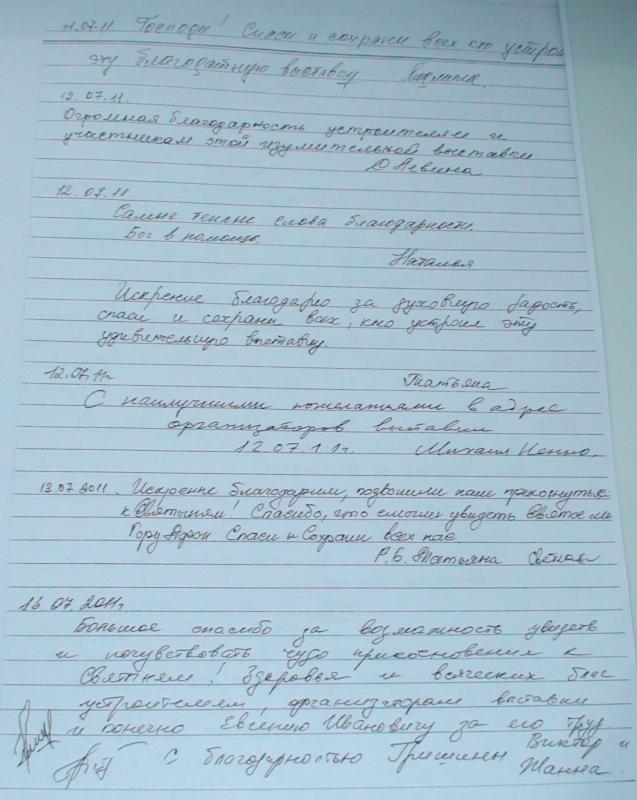 11.07.11 Господи! Спаси и сохрани всех кто устрои
эту благодатную выставку Людмила.
12.07.11.
Огромная благодарность устроителям и
участникам этой изумительной выставки
О Левина
12.07.11
Самые теплые слова благодарности.
Бог в помощь.
Наталья
Искренне благодарю за духовную радость,
спаси и сохрани всех, кто устроил эту
удивительную выставку.
12.07.11г Татьяна
С наилучшими пожеланиями в адрес
организаторов выставки
12.07.11г. Михаил
13.07.2011. Искренне благодарим, позволили нам прикоснуться
к Святыням! Спасибо, что смогли увидеть Святое
Гору Афон Спаси и Сохрани всех нас
Р.Б. Татьяна
13.07.2011г.
Большое спасибо за возможность увидеть
и почувствовать чудо прикосновения к
Святыням! Здоровья и всяческих благ
устроителям, организаторам выставки
и конечно Евгению Ивановичу за его труд
С благодарностью Гришины Виктор и
Жанна.